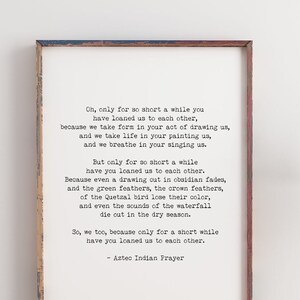 Oh, only for so short a while you
have loaned us to each other,
because we take form in your act of drawing us,
and we take life in your painting us,
and we breathe in your singing us.
But only for so short a while
have you loaned us to each other.
Because even a drawing cut in obsidian fades,
and the green feathers, the crown feathers,
of the Quetzal bird lose their color,
and even the sounds of the waterfall
die out in the dry season.
So, we too, because only for a short while
have you loaned us to each other.
~ Aztec Indian Prayer